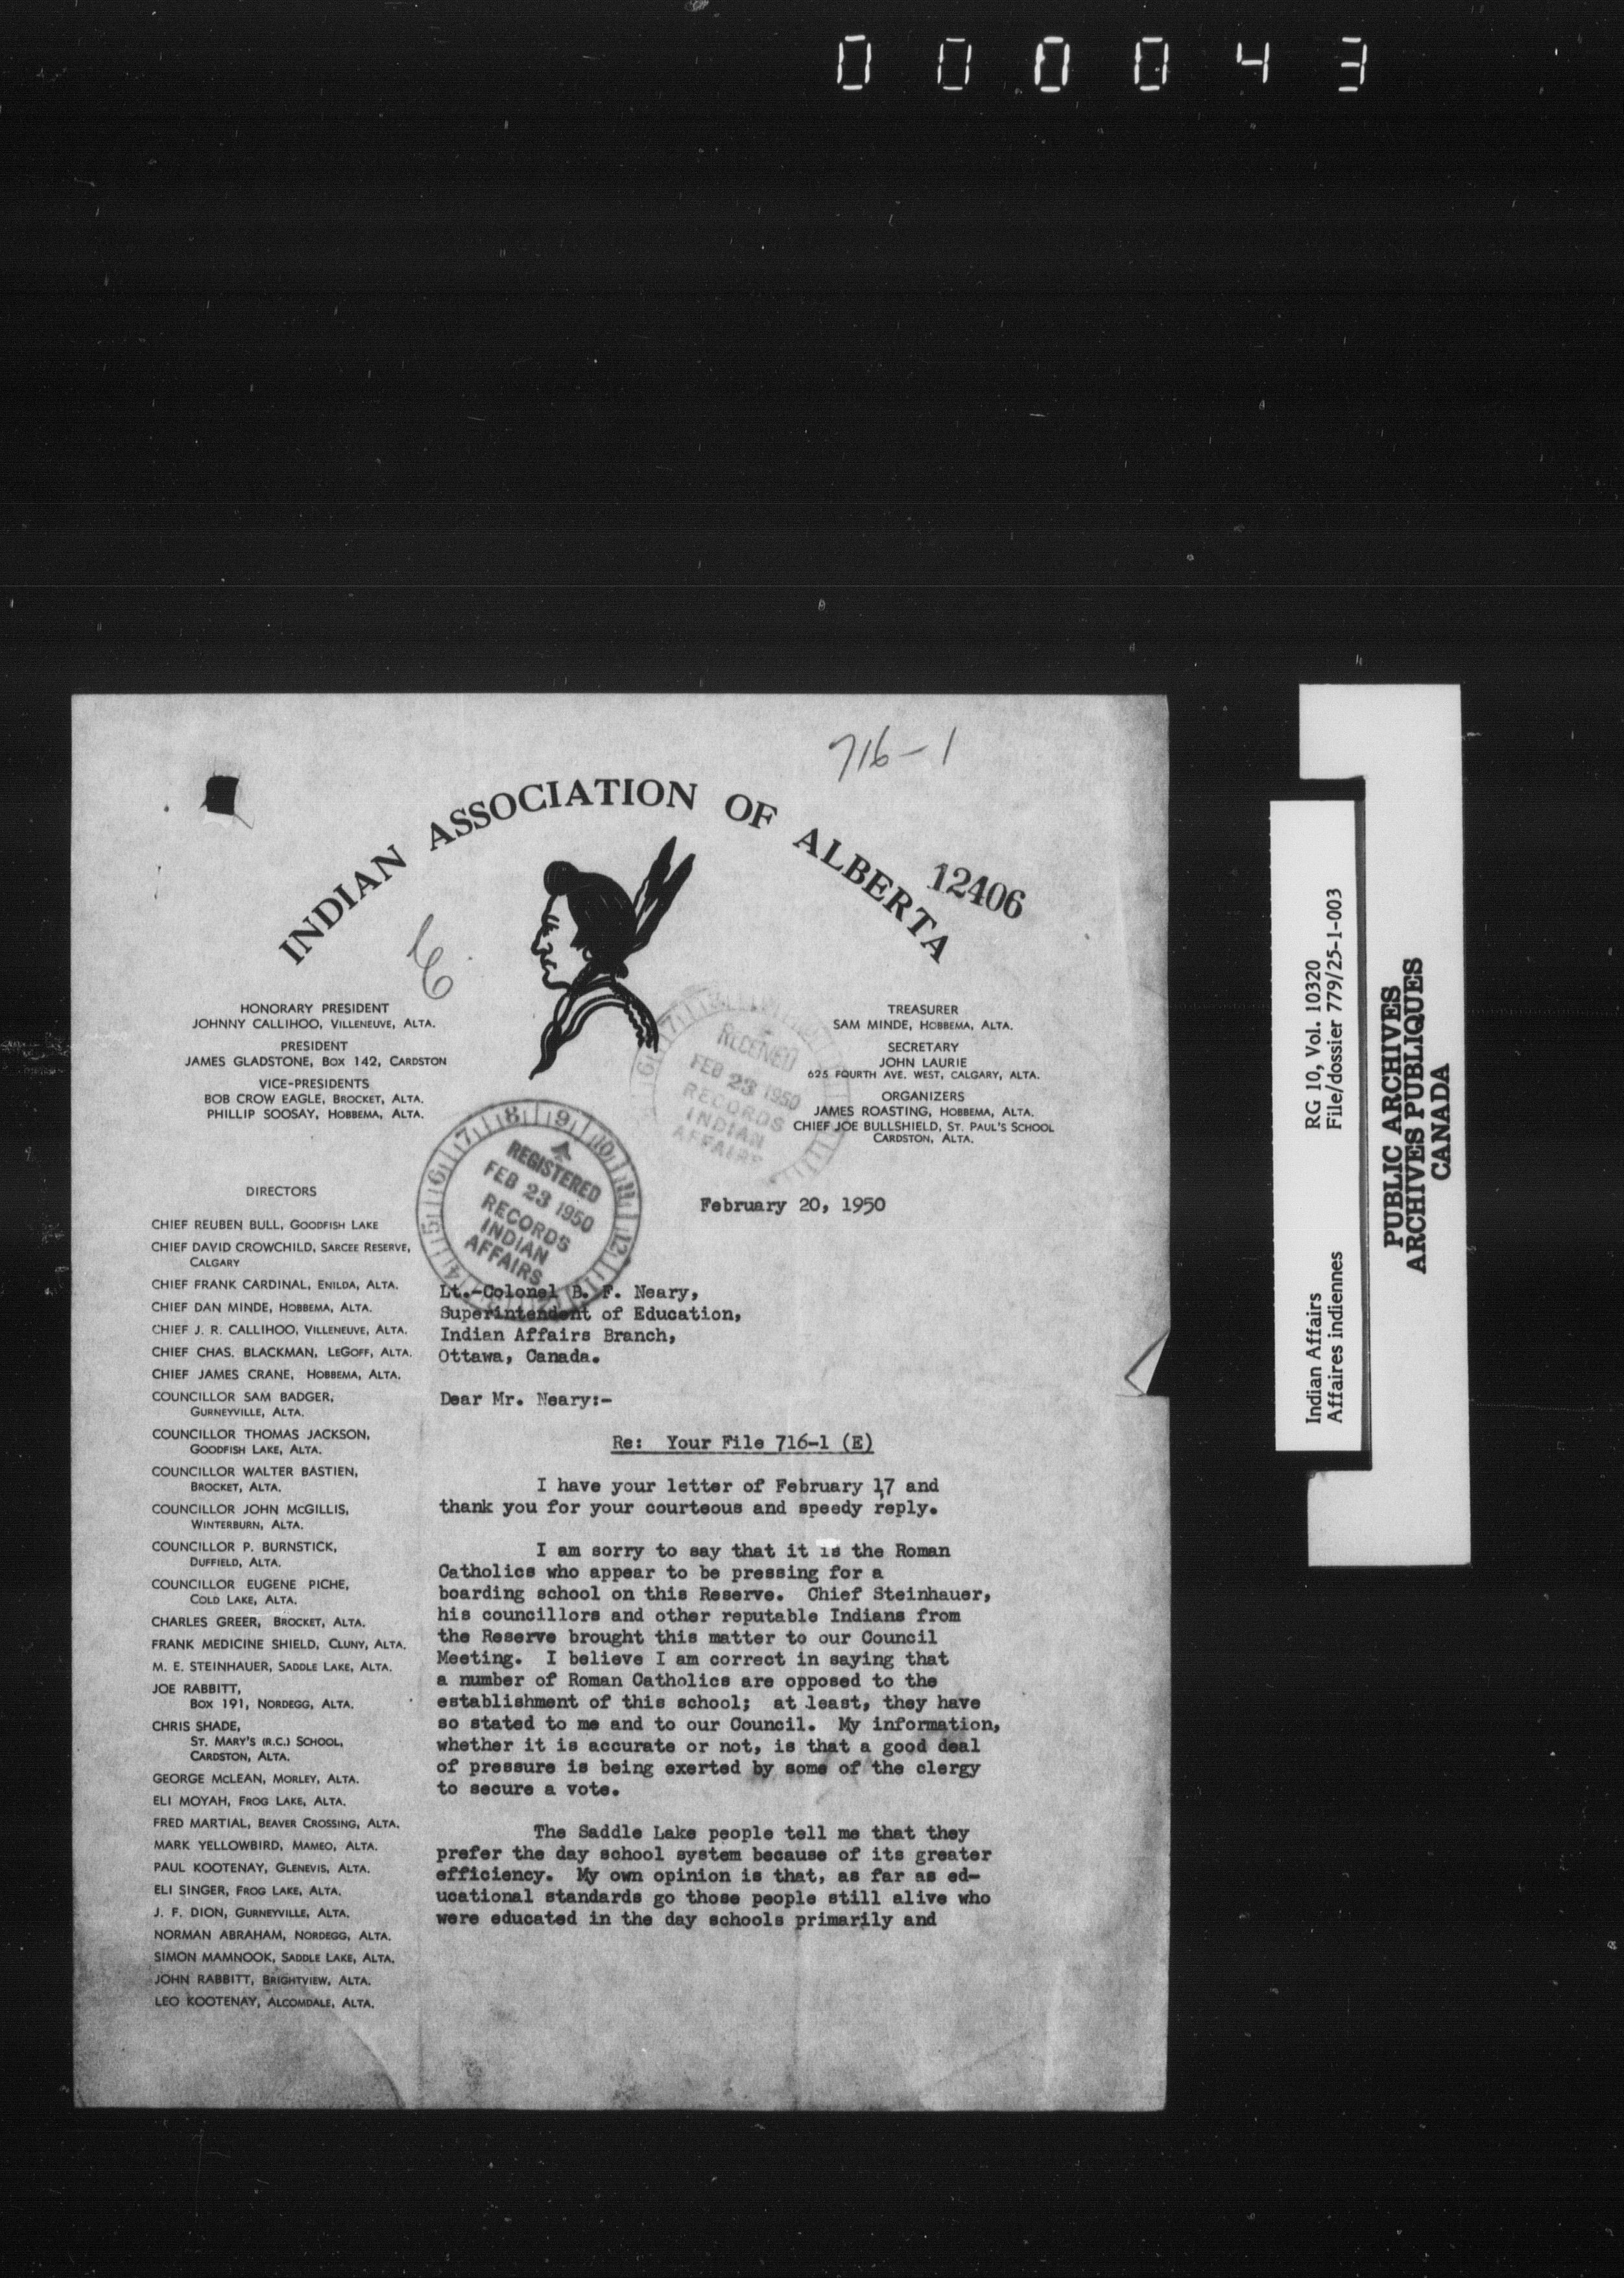 000043
716-1
INDIAN ASSOCIATION OF ALBERTA
12406
HONORARY PRESIDENT
JOHNNY CALLIHOO, VILLENEUVE, ALTA.
PRESIDENT
JAMES GLADSTONE, BOX 142, CARDSTON
VICE-PRESIDENTS
BOB CROW EAGLE, BROCKET, ALTA.
PHILLIP SOOSAY, HOBBEMA, ALTA.
TREASURER
SAM MINDE, HOBBEMA, ALTA.
SECRETARY
JOHN LAURIE
625 FOURTH AVE. WEST, CALGARY, ALTA.
ORGANIZERS
JAMES ROASTING, HOBBEMA, ALTA.
CHIEF JOE BULLSHIELD, ST. PAUL'S SCHOOL
CARDSTON, ALTA.
RECEIVED
FEB 23 1950
RECORDS
INDIAN
AFFAIRS
REGISTERED
FEB 23 1950
RECORDS
INDIAN
AFFAIRS
DIRECTORS
CHIEF REUBEN BULL, GOODFISH LAKE
CHIEF DAVID CROWCHILD, SARCEE RESERVE,
CALGARY
CHIEF FRANK CARDINAL, ENILDA, ALTA.
CHIEF DAN MINDE, HOBBEMA, ALTA.
CHIEF J. R. CALLIHOO, VILLENEUVE, ALTA.
CHIEF CHAS. BLACKMAN, LEGOFF, ALTA.
CHIEF JAMES CRANE, HOBBEMA, ALTA.
COUNCILLOR SAM BADGER,
GURNEYVILLE, ALTA.
COUNCILLOR THOMAS JACKSON,
GOODFISH LAKE, ALTA.
COUNCILLOR WALTER BASTIEN,
BROCKET, ALTA.
COUNCILLOR JOHN McGILLIS,
WINTERBURN, ALTA.
COUNCILLOR P. BURNSTICK,
DUFFIELD, ALTA.
COUNCILLOR EUGENE PICHE,
COLD LAKE, ALTA.
CHARLES GREER, BROCKET, ALTA.
FRANK MEDICINE SHIELD, CLUNY, ALTA.
M. E. STEINHAUER, SADDLE LAKE, ALTA.
JOE RABBITT,
BOX 191, NORDEGG, ALTA.
CHRIS SHADE,
ST. MARY'S (R.C.) SCHOOL,
CARDSTON, ALTA.
GEORGE McLEAN, MORLEY, ALTA.
ELI MOYAH, FROG LAKE, ALTA.
FRED MARTIAL, BEAVER CROSSING, ALTA.
MARK YELLOWBIRD, MAMEO, ALTA.
PAUL KOOTENAY, GLENEVIS, ALTA.
ELI SINGER, FROG LAKE, ALTA.
J. F. DION, GURNEYVILLE, ALTA.
NORMAN ABRAHAM, NORDEGG, ALTA.
SIMON MAMNOOK, SADDLE LAKE, ALTA.
JOHN RABBITT, BRIGHTVIEW, ALTA.
LEO KOOTENAY, ALCOMDALE, ALTA.
February 20, 1950
Lt.-Colonel B. F. Neary,
Superintendent of Education,
Indian Affairs Branch,
Ottawa, Canada.
Dear Mr. Neary:-
Re: Your File 716-1 (E)
I have your letter of February 17 and
thank you for your courteous and speedy reply.
I am sorry to say that it is the Roman
Catholics who appear to be pressing for a
boarding school on this Reserve. Chief Steinhauer,
his councillors and other reputable Indians from
the Reserve brought this matter to our Council
Meeting. I believe I am correct in saying that
a number of Roman Catholics are opposed to the
establishment of this school; at least, they have
so stated to me and to our Council. My information,
whether it is accurate or not, is that a good deal
of pressure is being exerted by some of the clergy
to secure a vote.
The Saddle Lake people tell me that they
prefer the day school system because of its greater
efficiency. My own opinion is that, as far as ed-
ucational standards go those people still alive who
were educated in the day schools primarily and
Indian Affairs RG 10, Vol. 10320
Affaires indiennes File/dossier 779/25-1-003
PUBLIC ARCHIVES
ARCHIVES PUBLIQUES
CANADA